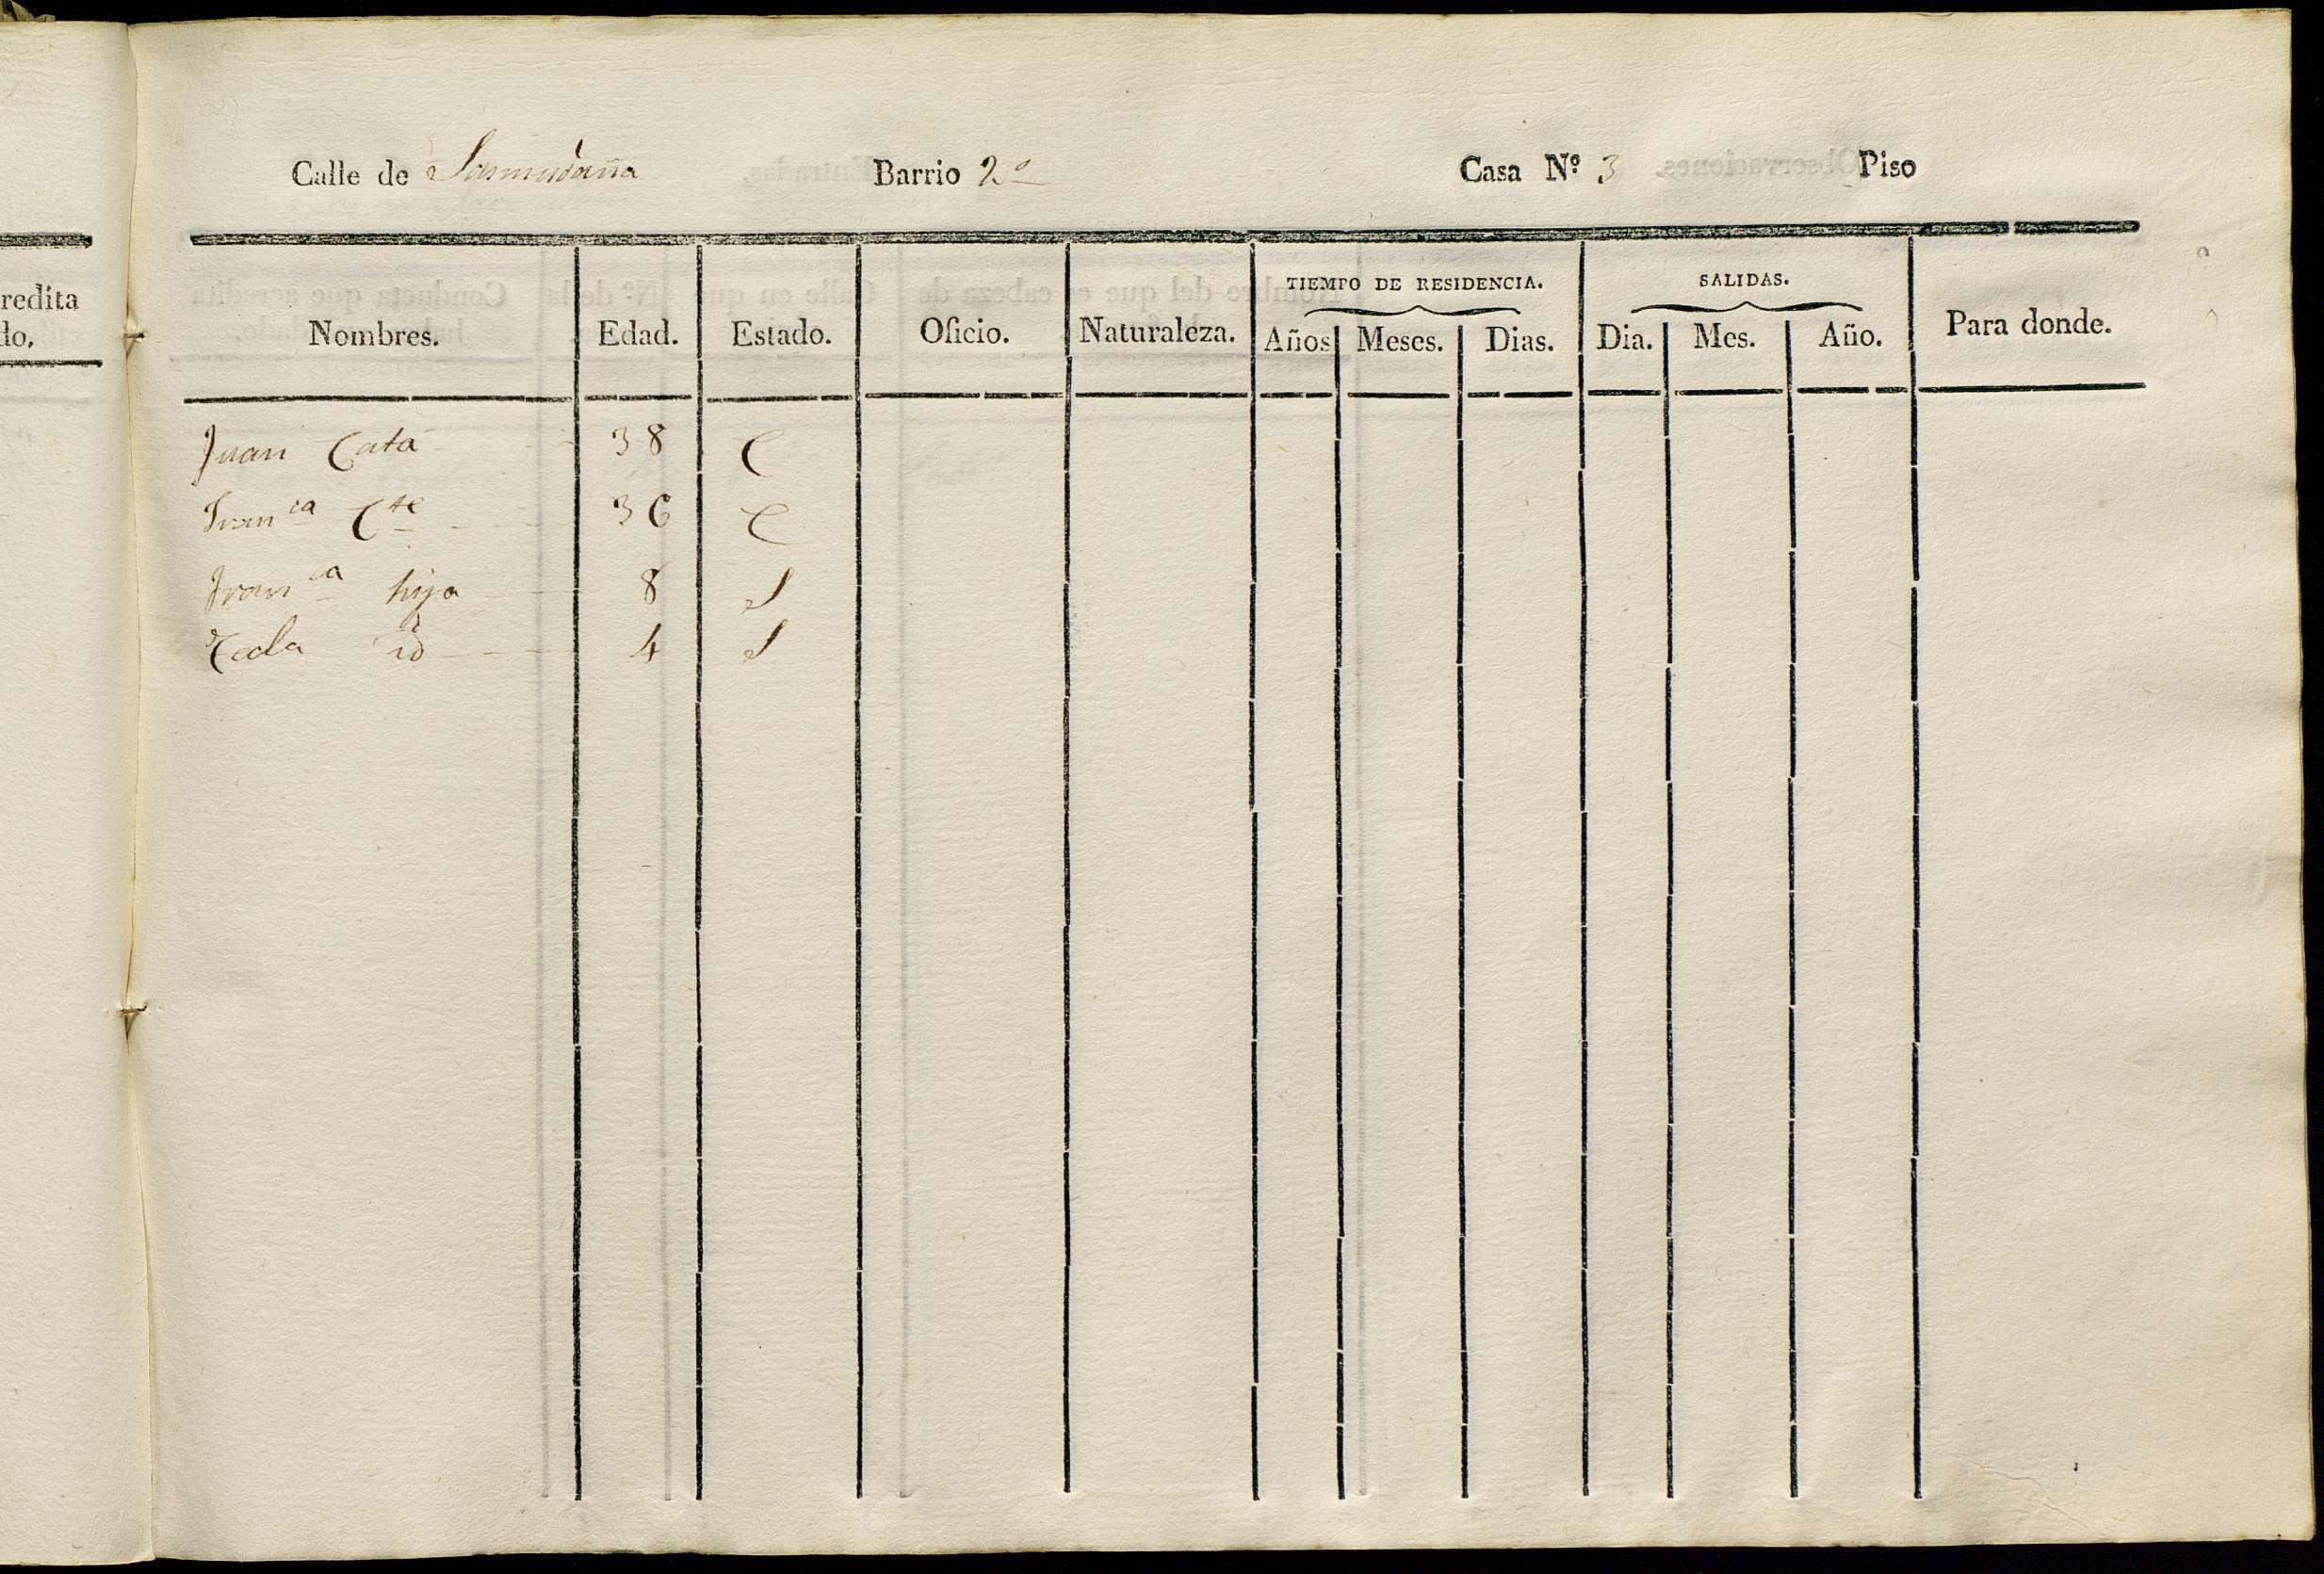 Calle de Sasmudaña Barrio 2º Casa Nº 3 Piso
redita
do.
TIEMPO DE RESIDENCIA. SALIDAS.
Nombres. Edad. Estado. Oficio. Naturaleza. Años Meses. Dias. Dia. Mes. Año. Para donde.
Juan Catá 38 C
Franca Cte 36 C
Franca hija 8 S
Tecla id 4 S